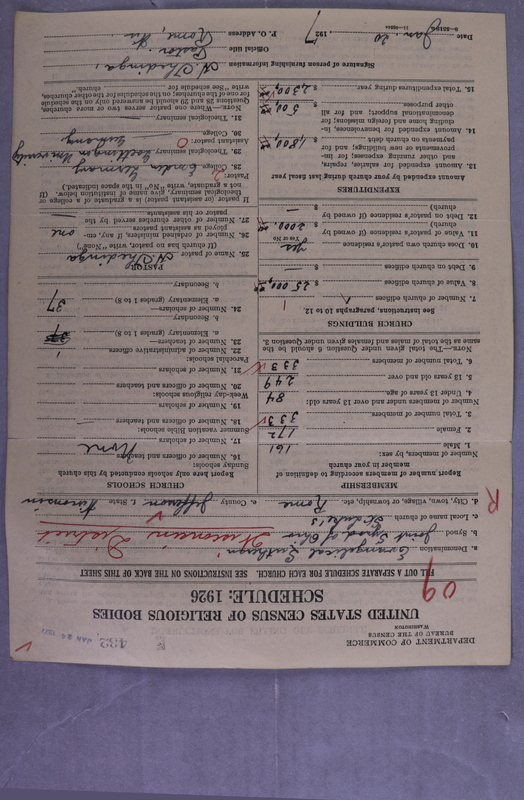 DEPARTMENT OF COMMERCE
BUREAU OF THE CENSUS
WASHINGTON
432
JAN 24 1927
UNITED STATES CENSUS OF RELIGIOUS BODIES
SCHEDULE: 1926
09
FILL OUT A SEPARATE SCHEDULE FOR EACH CHURCH. SEE INSTRUCTIONS ON THE BACK OF THIS SHEET
a. Denomination Evangelical Lutheran
b. Synod Joint Synod of Ohio Wisconsin District
c. Local name of church St. Luke's
d. City, town, village, or township, etc. Rome e. County Jefferson f. State Wisconsin
R
MEMBERSHIP
Report number of members according to definition of member in your church
Number of members, by sex:
1. Male 161
2. Female 172
3. Total number of members 333
Number of members under and over 13 years old:
4. Under 13 years of age 84
5. 13 years old and over 249
6. Total number of members 333
NOTE.—The total given under Question 6 should be the same as the total of males and females given under Question 3.
CHURCH BUILDINGS
See instructions, paragraphs 10 to 12
7. Number of church edifices 1
8. Value of church edifices $ 25000
9. Debt on church edifices $ —
10. Does church own pastor's residence Yes
Yes or No
11. Value of pastor's residence (if owned by church) $ 2000
12. Debt on pastor's residence (if owned by church) $ —
EXPENDITURES
Amount expended by your church during last fiscal year
13. Amount expended for salaries, repairs, and other running expenses; for improvements or new building; and for payments on church debt $ 1,800
14. Amount expended for benevolences, including home and foreign missions; for denominational support; and for all other purposes $ 500
15. Total expenditures during year $ 2300
CHURCH SCHOOLS
Report here only schools conducted by this church
Sunday schools:
16. Number of officers and teachers None
17. Number of scholars
Summer vacation Bible schools:
18. Number of officers and teachers
19. Number of scholars
Week-day religious schools:
20. Number of officers and teachers
21. Number of scholars
Parochial schools:
22. Number of administrative officers 1
23. Number of teachers—
a. Elementary (grades 1 to 8)
b. Secondary
24. Number of scholars—
a. Elementary (grades 1 to 8) 37
b. Secondary
PASTOR
25. Name of pastor
(If church has no pastor, write "None")
26. Number of ordained ministers, if any, employed as assistant pastors one
27. Number of other churches served by the pastor or his assistants
If pastor (or assistant pastor) is a graduate of a college or theological seminary, give name of institution below. (If not a graduate, write "No" in the space indicated.)
Pastor:
28. College Emden Germany
29. Theological seminary Goettingen University Germany
Assistant pastor:
30. College
31. Theological seminary
NOTE.—Where one pastor serves two or more churches, Questions 28 and 29 should be answered only on the schedule for one of the churches; on the schedules for the other churches, write "See schedule for church."
Signature of person furnishing information
Official title Pastor
P. O. Address Rome, Wis
Date Jan. 20 1927